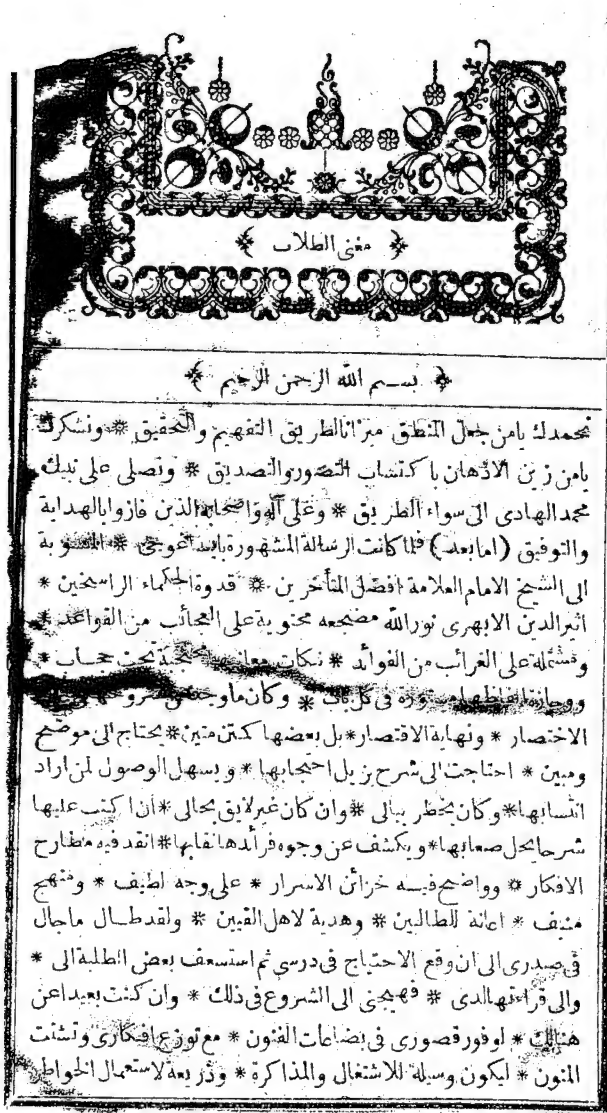 مغنى الطلاب
بسم الله الرحمن الرحيم
نحمدك يامن جعل المنطق ميزانا لطريق التفهيم والتحقيق * ونشكرك
يامن زين الاذهان باكتساب التصور والتصديق * ونصلى على نبيك
محمد الهادى الى سواء الطريق * وعلى آله واصحابه الذين فازوا بالهداية
والتوفيق (اما بعد) فلما كانت الرسالة المشهورة بايساغوجى * المنسوبة
الى الشيخ الامام العلامة افضل المتأخرين * قدوة الحكماء الراسخين *
اثير الدين الابهرى نور الله مضجعه محتوية على العجائب من القواعد *
ومشتملة على الغرائب من الفوائد * نكات معانيه محتجبة تحت حجاب *
ووجازة الفاظها مستورة فى كل باب * وكان ما وجد من شروحها فى
الاختصار * ونهاية الاقتصار * بل بعضها كمتن متين * يحتاج الى موضح
ومبين * احتاجت الى شرح يزيل احتجابها * ويسهل الوصول لمن اراد
انتسابها * وكان يخطر ببالى * وان كان غير لايق بحالى * ان اكتب عليها
شرحا يحل صعابها * ويكشف عن وجوه فرائدها نقابها * انقد فيه مطارح
الافكار * وواضح فيه خزائن الاسرار * على وجه لطيف * ومنهج
منيف * اعانة للطالبين * وهدية لاهل اليقين * ولقد طال ما جال
فى صدرى الى ان وقع الاحتياج فى درسى ثم استسعف بعض الطلبة الى *
والى قرائتها لدى * فهيجنى الى الشروع فى ذلك * وان كنت بعيدا عن
هنالك * لوفور قصورى فى بضاعات الفنون * مع توزع افكارى وتشتت
المنون * ليكون وسيلة للاشتغال والمذاكرة * وذريعة لاستعمال الخواطر